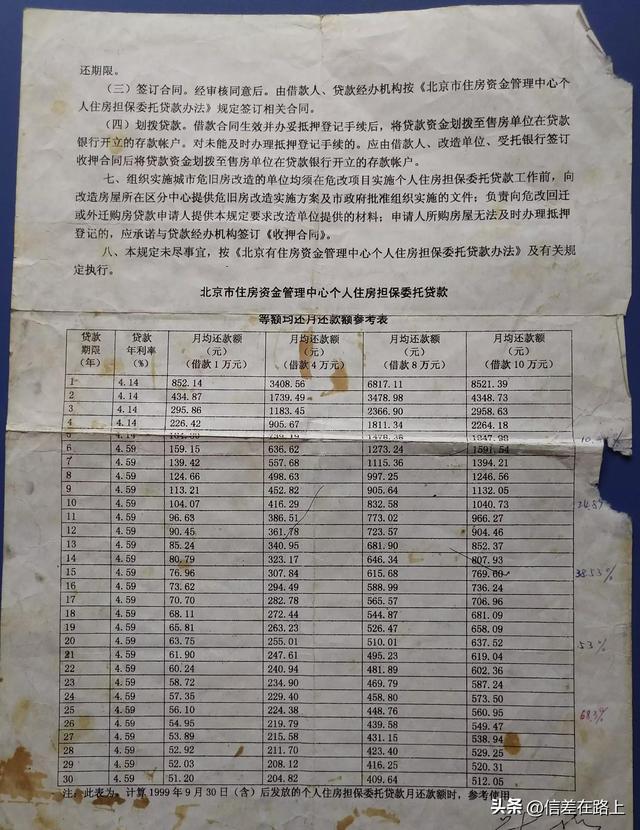 还期限。
（三）签订合同。经审核同意后。由借款人、贷款经办机构按《北京市住房资金管理中心个
人住房担保委托贷款办法》规定签订相关合同。
（四）划拨贷款。借款合同生效并办妥抵押登记手续后，将贷款资金划拨至售房单位在贷款
银行开立的存款帐户。对未能及时办理抵押登记手续的。应由借款人、改造单位、受托银行签订
收押合同后将贷款资金划拨至售房单位在贷款银行开立的存款帐户。
七、组织实施城市危旧房改造的单位均须在危改项目实施个人住房担保委托贷款工作前，向
改造房屋所在区分中心提供危旧房改造实施方案及市政府批准组织实施的文件；负责向危改回迁
或外迁购房贷款申请人提供本规定要求改造单位提供的材料；申请人所购房屋无法及时办理抵押
登记的，应承诺与贷款经办机构签订《收押合同》。
八、本规定未尽事宜，按《北京有住房资金管理中心个人住房担保委托贷款办法》及有关规
定执行。
北京市住房资金管理中心个人住房担保委托贷款
等额均还月还款额参考表
贷款期限（年） 贷款年利率（%） 月均还款额（元）（借款1万元） 月均还款额（元）（借款4万元） 月均还款额（元）（借款8万元） 月均还款额（元）（借款10万元）
1 4.14 852.14 3408.56 6817.11 8521.39
2 4.14 434.87 1739.49 3478.98 4348.73
3 4.14 295.86 1183.45 2366.90 2958.63
4 4.14 226.42 905.67 1811.34 2264.18
5 4.14 184.80 739.19 1478.38 1847.98
6 4.59 159.15 636.62 1273.24 1591.54
7 4.59 139.42 557.68 1115.36 1394.21
8 4.59 124.66 498.63 997.25 1246.56
9 4.59 113.21 452.82 905.64 1132.05
10 4.59 104.07 416.29 832.58 1040.73
11 4.59 96.63 386.51 773.02 966.27
12 4.59 90.45 361.78 723.57 904.46
13 4.59 85.24 340.95 681.90 852.37
14 4.59 80.79 323.17 646.34 807.93
15 4.59 76.96 307.84 615.68 769.60 38.53%
16 4.59 73.62 294.49 588.99 736.24
17 4.59 70.70 282.78 565.57 706.96
18 4.59 68.11 272.44 544.87 681.09
19 4.59 65.81 263.23 526.47 658.09
20 4.59 63.75 255.01 510.01 637.52 53%
21 4.59 61.90 247.61 495.23 619.04
22 4.59 60.24 240.94 481.89 602.36
23 4.59 58.72 234.90 469.79 587.24
24 4.59 57.35 229.40 458.80 573.50
25 4.59 56.10 224.38 448.76 560.95
26 4.59 54.95 219.79 439.58 549.47
27 4.59 53.89 215.58 431.15 538.94
28 4.59 52.92 211.70 423.40 529.25
29 4.59 52.03 208.12 416.25 520.31
30 4.59 51.20 204.82 409.64 512.05
注：此表为，计算1999年9月30日（含）后发放的个人住房担保委托贷款月还款额时，参考使用
头条 @信差在路上